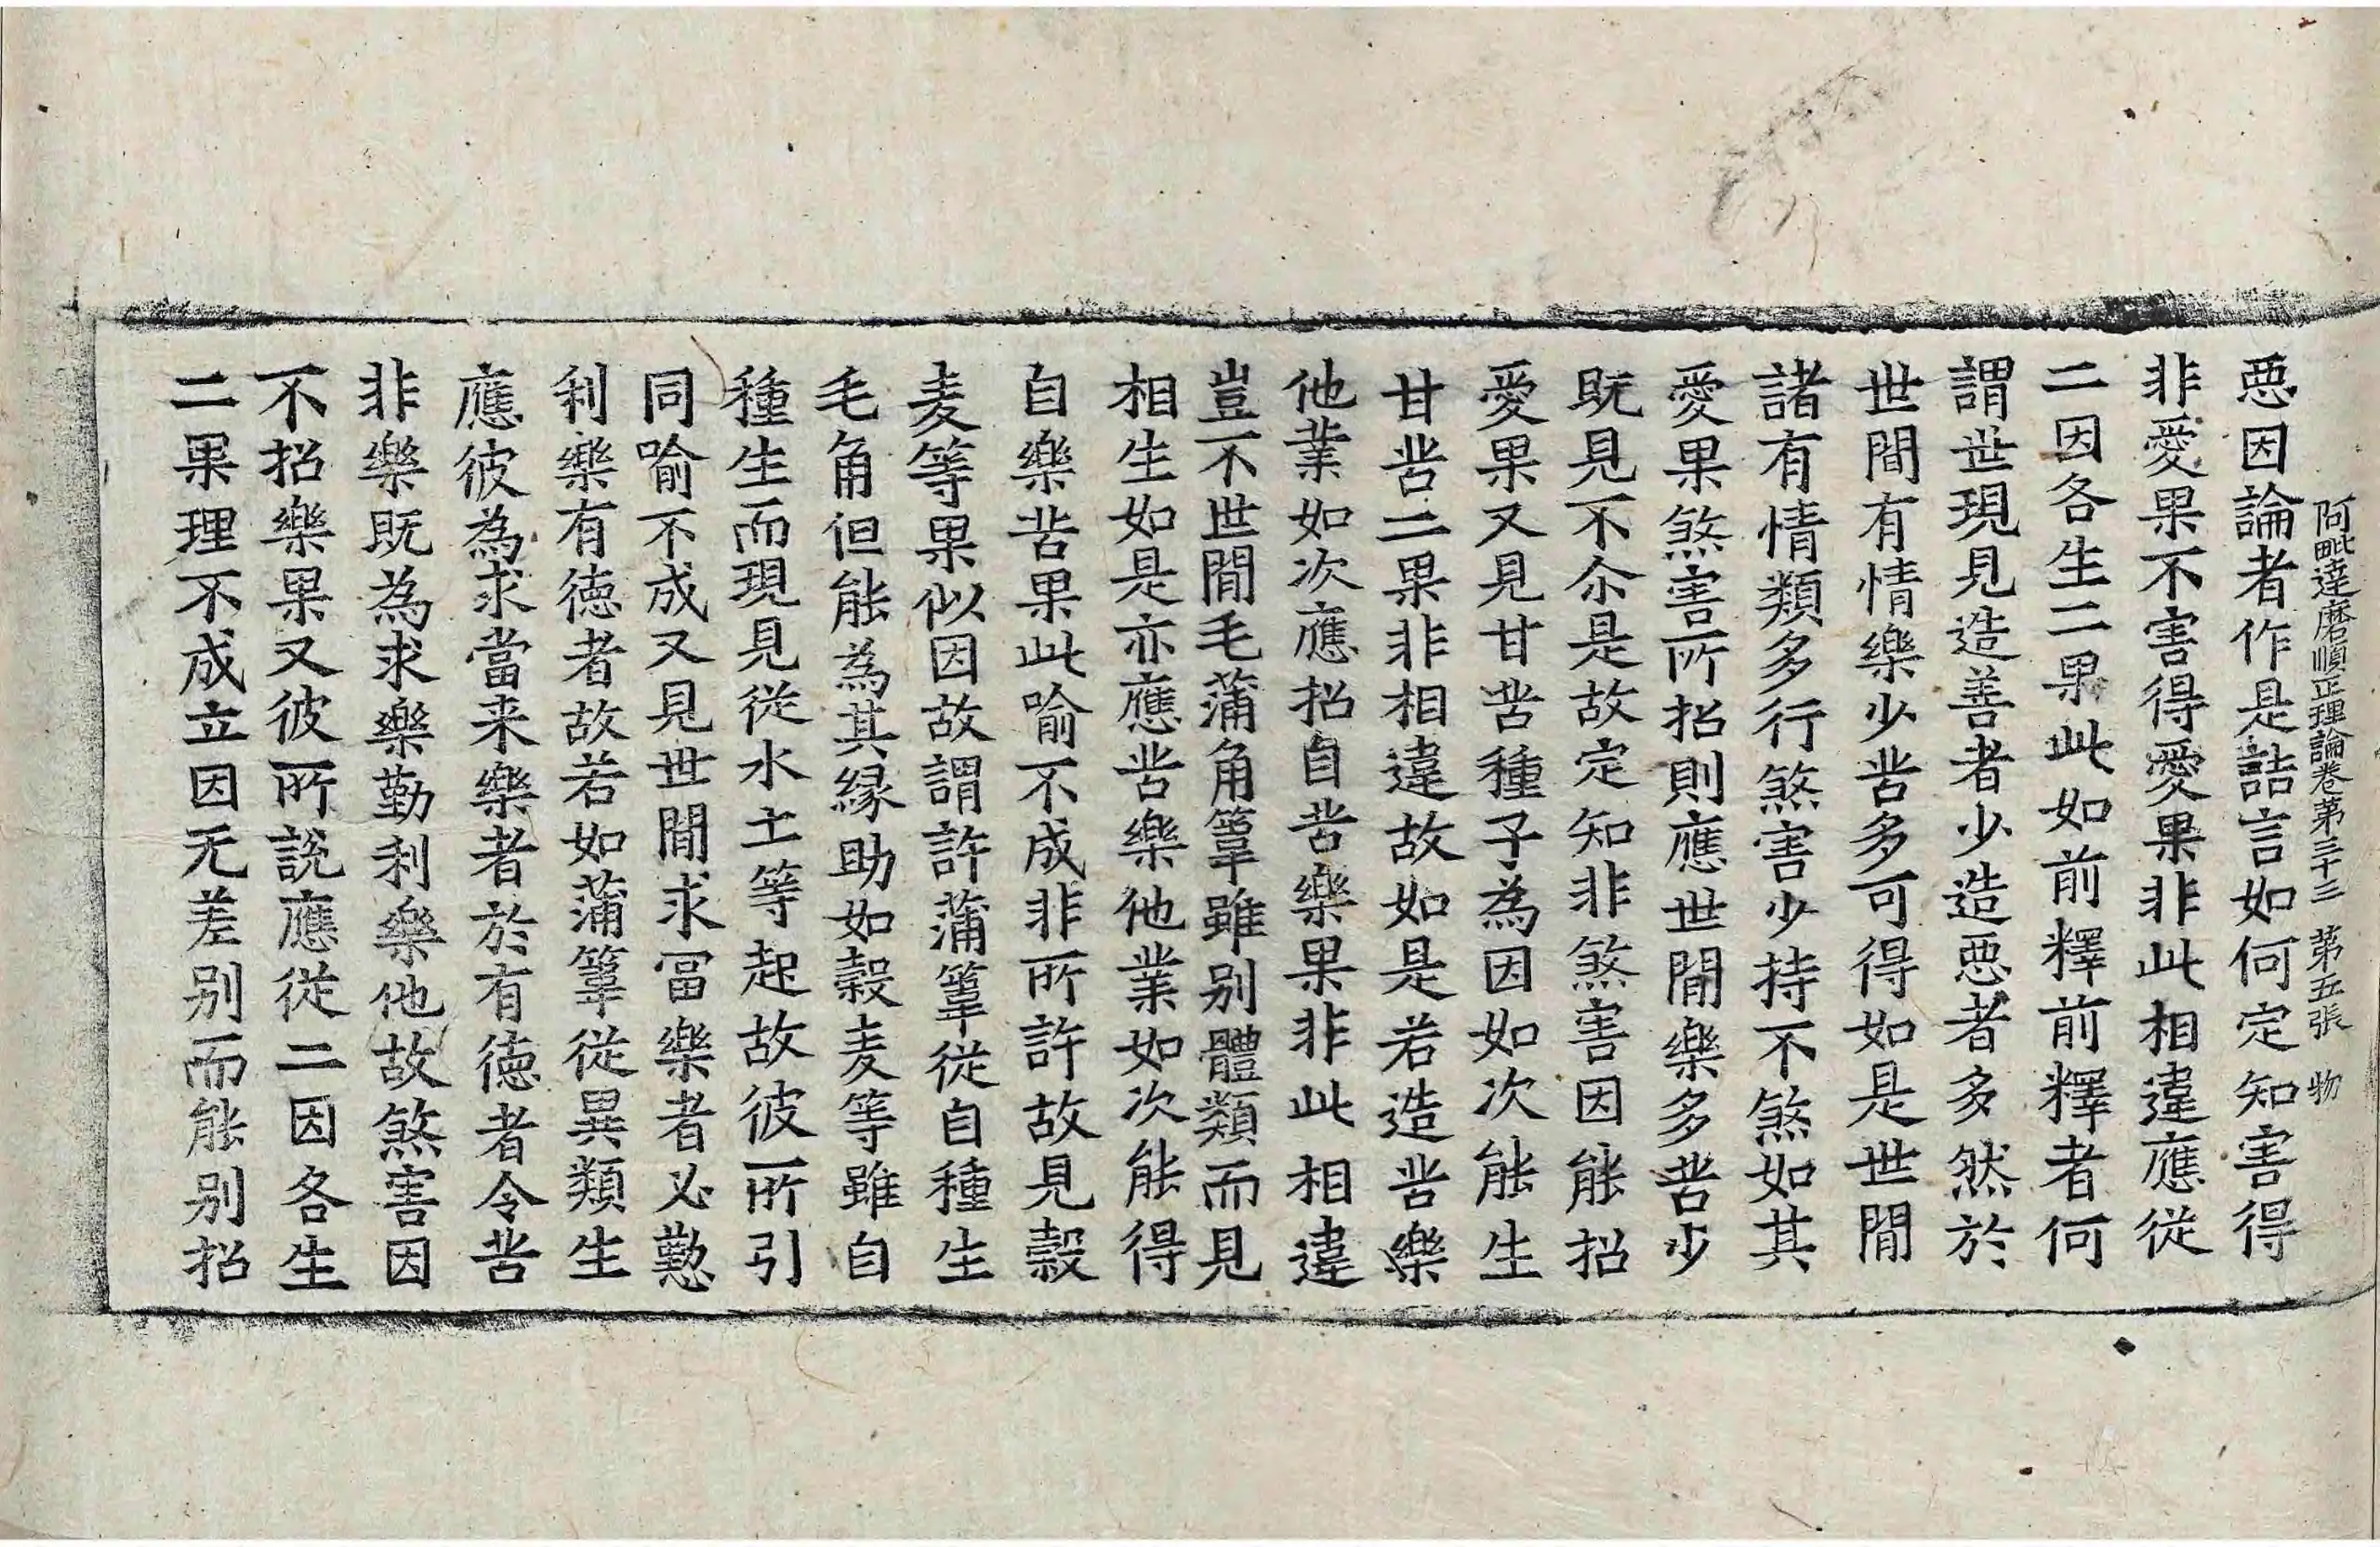 阿毗達磨順正理論卷第三十三 第五張 物
惡因論者作是詰言如何定知害得
非愛果不害得愛果非此相違應從
二因各生二果此如前釋前釋者何
謂世現見造善者少造惡者多然於
世間有情樂少苦多可得如是世間
諸有情類多行煞害少持不煞如其
愛果煞害所招則應世間樂多苦少
既見不尒是故定知非煞害因能招
愛果又見甘苦種子為因如次能生
甘苦二果非相違故如是若造苦樂
他業如次應招自苦樂果非此相違
豈不世間毛蒲角葦雖別體類而見
相生如是亦應苦樂他業如次能得
自樂苦果此喻不成非所許故見穀
麦等果似因故謂許蒲葦從自種生
毛角但能為其緣助如穀麦等雖自
種生而現見從水土等起故彼所引
同喻不成又見世間求冨樂者必懃
利樂有德者故若如蒲葦從異類生
應彼為求當来樂者於有德者令苦
非樂既為求樂勤利樂他故煞害因
不招樂果又彼所說應從二因各生
二果理不成立因无差別而能別招